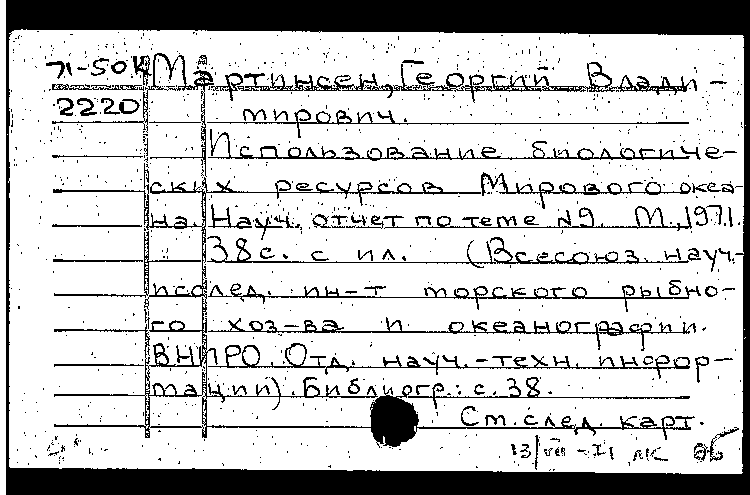 71-50К Мартинсен, Георгий Влади-
2220 мирович.
Использование биологиче-
ских ресурсов Мирового океа-
на. Науч. отчет по теме №9. М., 1971.
38 с. с ил. (Всесоюз. науч.-
исслед. ин-т морского рыбно-
го хоз-ва и океанографии.
ВНИРО. Отд. науч.-техн. инфор-
мации). Библиогр.: с. 38.
См. след. карт.
13/VII-71 ЛК